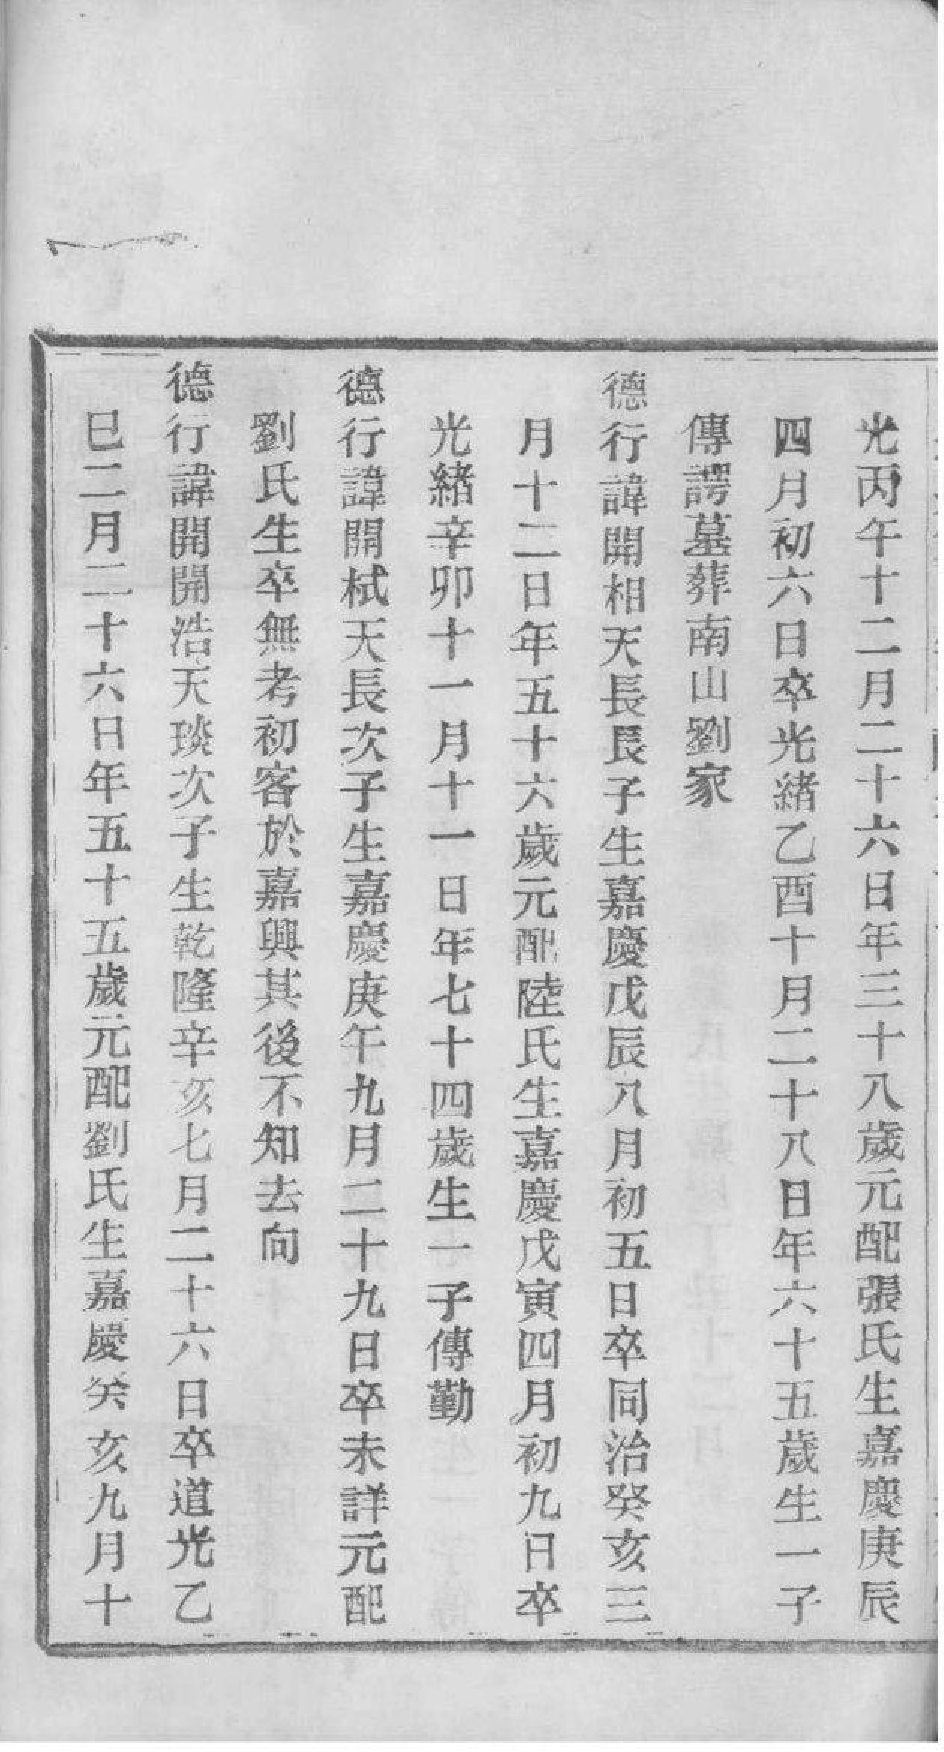 光丙午十二月二十六日年三十八歲元配張氏生嘉慶庚辰
四月初六日卒光緒乙酉十月二十八日年六十五歲生一子
傳諤墓葬南山劉家
德行諱開相天長長子生嘉慶戊辰八月初五日卒同治癸亥三
月十二日年五十六歲元配陸氏生嘉慶戊寅四月初九日卒
光緒辛卯十一月十一日年七十四歲生一子傳勤
德行諱開栻天長次子生嘉慶庚午九月二十九日卒未詳元配
劉氏生卒無考初客於嘉興其後不知去向
德行諱開開浩天琰次子生乾隆辛亥七月二十六日卒道光乙
巳二月二十六日年五十五歲元配劉氏生嘉慶癸亥九月十